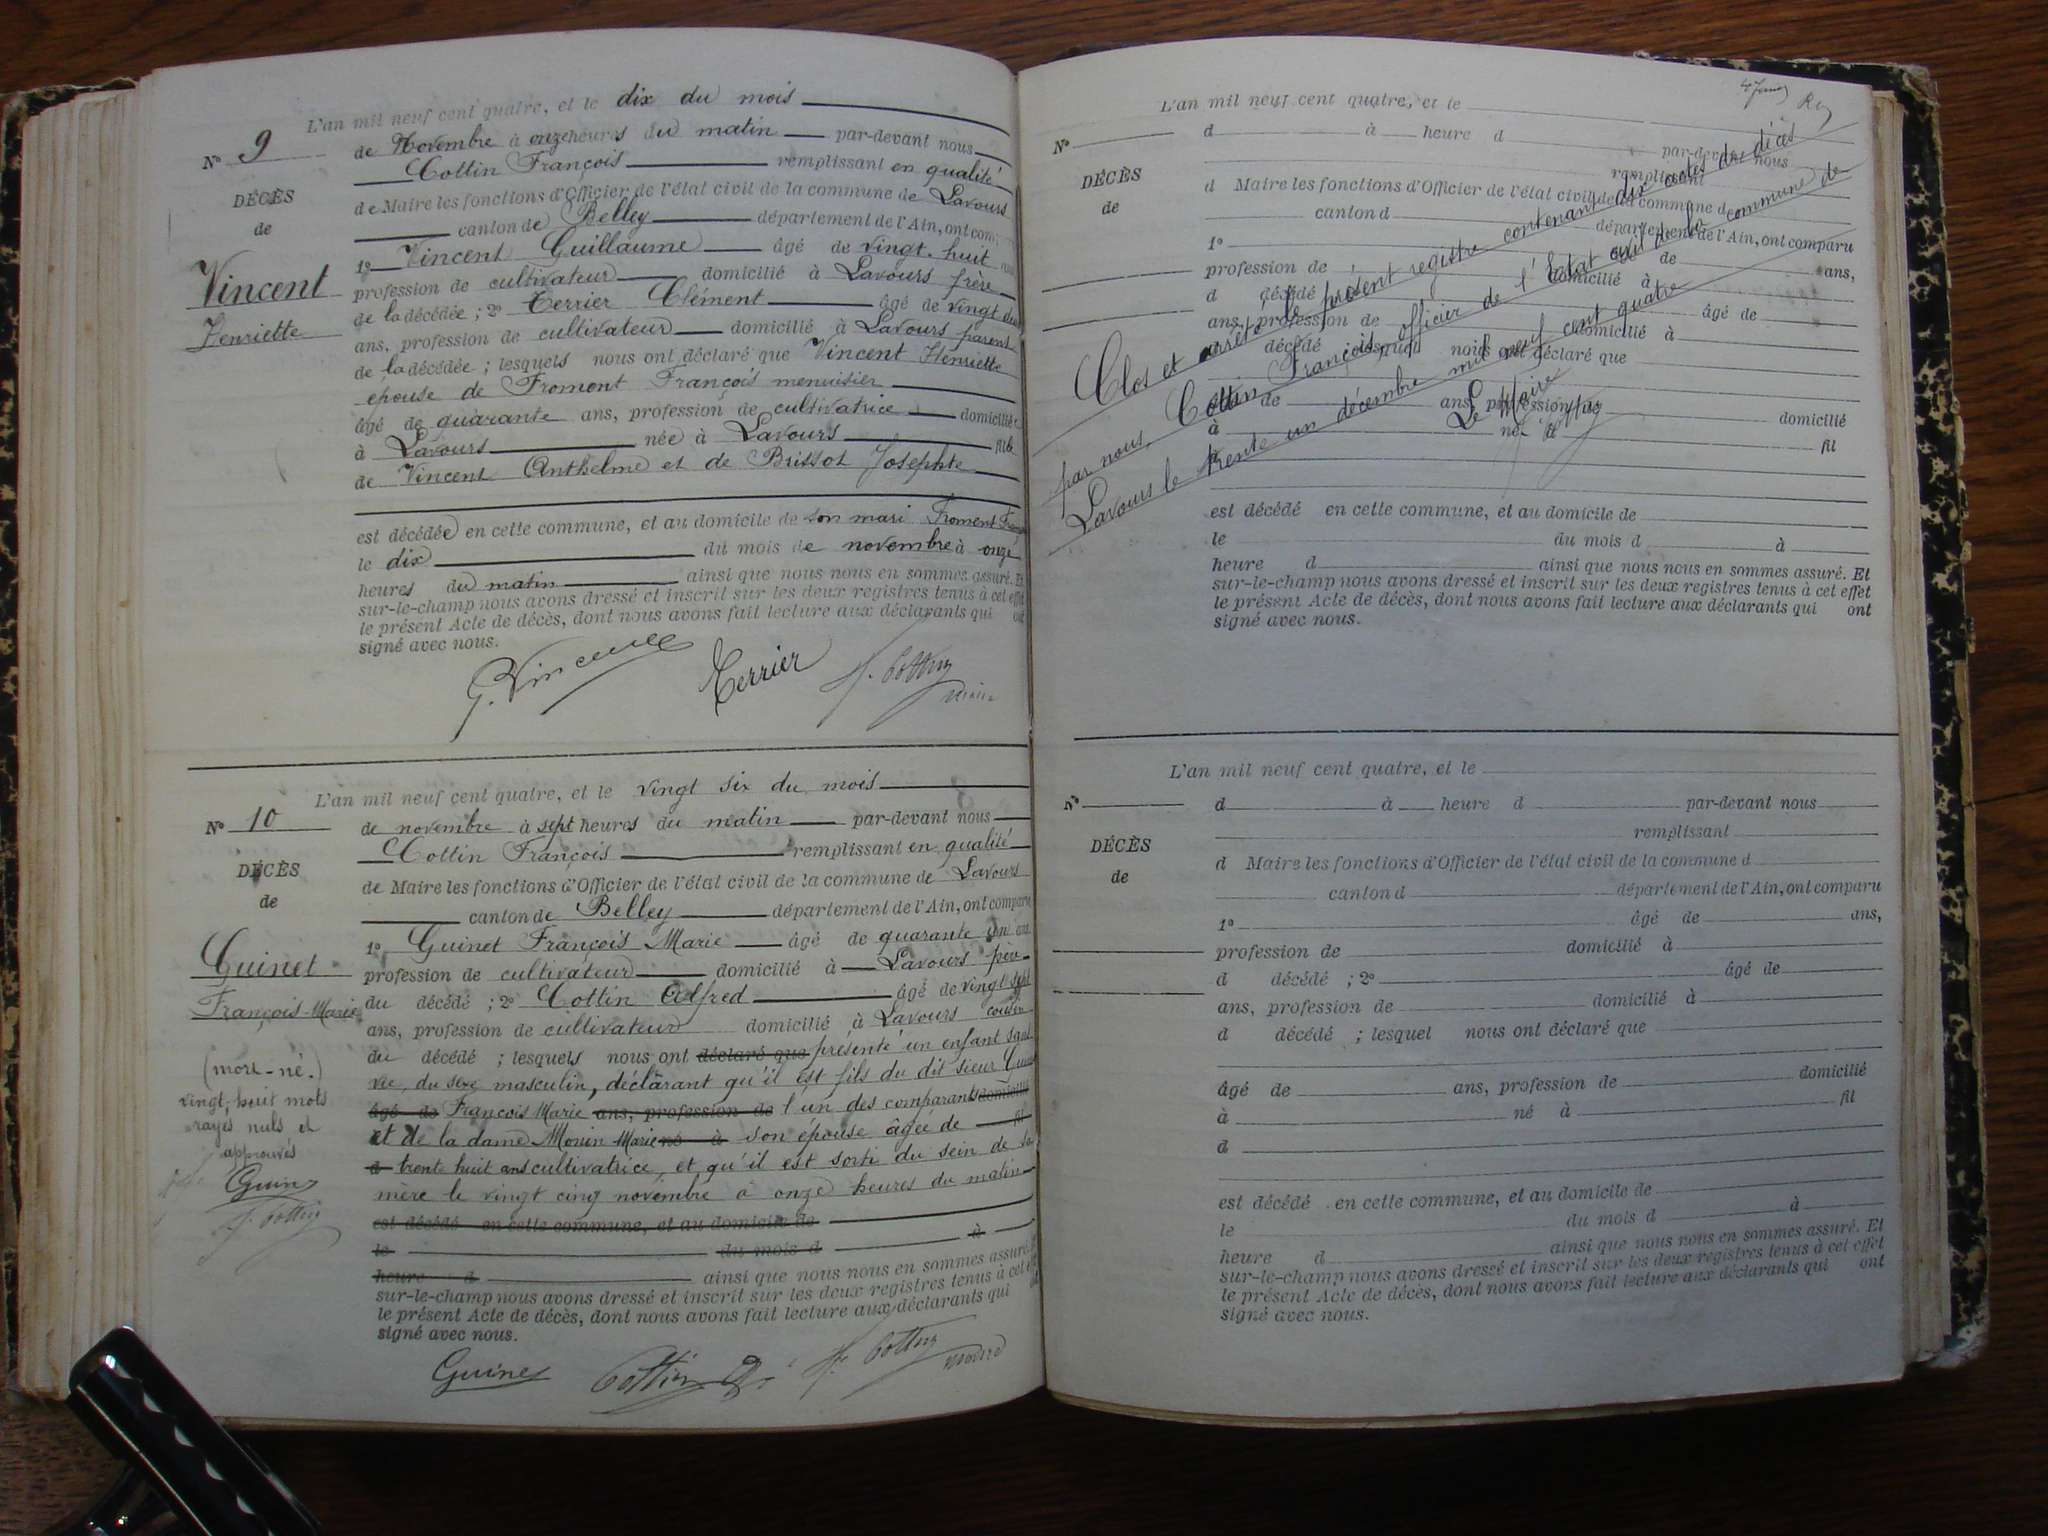 L'an mil neuf cent quatre, et le dix du mois
No 9
de Novembre à onze heures du matin par-devant nous
Cottin François remplissant en qualité
DÉCÈS
de Maire les fonctions d'Officier de l'état civil de la commune de Lavours
de
canton de Belley département de l'Ain, ont com
1o Vincent Guillaume âgé de vingt-huit
Vincent
profession de cultivateur domicilié à Lavours frère
Henriette
de la décédée ; 2o Terrier Clément âgé de vingt
ans, profession de cultivateur domicilié à Lavours parent
de la décédée ; lesquels nous ont déclaré que Vincent Henriette
épouse de Fromont François menuisier
âgé de quarante ans, profession de cultivatrice domicilié
à Lavours née à Lavours fille
de Vincent Anthelme et de Brissot Josephte
est décédée en cette commune, et au domicile de son mari Fromont
le dix du mois de novembre à onze
heures du matin ainsi que nous nous en sommes assuré. Et
sur-le-champ nous avons dressé et inscrit sur les deux registres tenus à cet effet
le présent Acte de décès, dont nous avons fait lecture aux déclarants qui ont
signé avec nous.
G. Vincent Terrier F. Cottin
maire
L'an mil neuf cent quatre, et le vingt six du mois
No 10
de novembre à sept heures du matin par-devant nous
Cottin François remplissant en qualité
DÉCÈS
de Maire les fonctions d'Officier de l'état civil de la commune de Lavours
de
canton de Belley département de l'Ain, ont comparu
1o Guinet François Marie âgé de quarante un ans
Guinet
profession de cultivateur domicilié à Lavours père
François-Marie
du décédé ; 2o Cottin Alfred âgé de vingt sept
ans, profession de cultivateur domicilié à Lavours cousin
du décédé ; lesquels nous ont déclaré que présenté un enfant sans
(mort-né.)
vie, du sexe masculin, déclarant qu'il est fils du dit sieur Guinet
vingt-huit mots
âgé de François Marie ans, profession de l'un des comparants domicilié
rayés nuls et
et de la dame Monin Marie né à son épouse âgée de fil
approuvés
d trente huit ans cultivatrice, et qu'il est sorti du sein de sa
Guinet
mère le vingt cinq novembre à onze heures du matin
F. Cottin
est décédé en cette commune, et au domicile de
le du mois d à
heure d ainsi que nous nous en sommes assuré.
sur-le-champ nous avons dressé et inscrit sur les deux registres tenus à cet
le présent Acte de décès, dont nous avons fait lecture aux déclarants qui
signé avec nous.
Guinet Cottin F. Cottin
maire
L'an mil neuf cent quatre, et le
No
d à heure d par-devant nous
remplissant
DÉCÈS
d Maire les fonctions d'Officier de l'état civil de la commune d
de
canton d département de l'Ain, ont comparu
1o de ans,
profession de domicilié à
d décédé
âgé de
ans, profession de domicilié à
décédé lesquel nous ont déclaré que
âgé de ans, profession de domicilié
à né à fil
d
Clos et arrêté le présent registre contenant dix actes de décès
par nous, Cottin François, officier de l'Etat civil de la commune de
Lavours le trente un décembre mil neuf cent quatre
Le Maire
est décédé en cette commune, et au domicile de
le du mois d à
heure d ainsi que nous nous en sommes assuré. Et
sur-le-champ nous avons dressé et inscrit sur les deux registres tenus à cet effet
le présent Acte de décès, dont nous avons fait lecture aux déclarants qui ont
signé avec nous.
L'an mil neuf cent quatre, et le
No
d à heure d par-devant nous
remplissant
DÉCÈS
d Maire les fonctions d'Officier de l'état civil de la commune d
de
canton d département de l'Ain, ont comparu
1o âgé de ans,
profession de domicilié à
d décédé ; 2o âgé de
ans, profession de domicilié à
d décédé ; lesquel nous ont déclaré que
âgé de ans, profession de domicilié
à né à fil
d
est décédé en cette commune, et au domicile de
le du mois d à
heure d ainsi que nous nous en sommes assuré. Et
sur-le-champ nous avons dressé et inscrit sur les deux registres tenus à cet effet
le présent Acte de décès, dont nous avons fait lecture aux déclarants qui ont
signé avec nous.